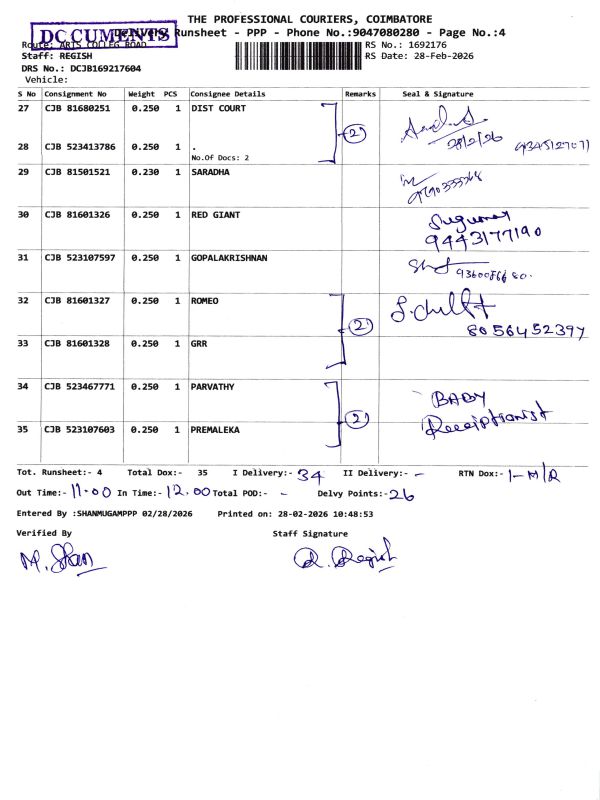 THE PROFESSIONAL COURIERS, COIMBATORE
DOCUMENTS
Delivery Runsheet - PPP - Phone No.:9047080280 - Page No.:4
Route: ARTS COLLEG ROAD RS No.: 1692176
Staff: REGISH RS Date: 28-Feb-2026
DRS No.: DCJB169217604
Vehicle:
S No Consignment No Weight PCS Consignee Details Remarks Seal & Signature
27 CJB 81680251 0.250 1 DIST COURT
(2) 28/2/26
28 CJB 523413786 0.250 1 .
No.Of Docs: 2
29 CJB 81501521 0.230 1 SARADHA
30 CJB 81601326 0.250 1 RED GIANT Sugumar
9443177190
31 CJB 523107597 0.250 1 GOPALAKRISHNAN
32 CJB 81601327 0.250 1 ROMEO
(2) 8056452397
33 CJB 81601328 0.250 1 GRR
34 CJB 523467771 0.250 1 PARVATHY BABY
(2) Receiptionist
35 CJB 523107603 0.250 1 PREMALEKA
Tot. Runsheet:- 4 Total Dox:- 35 I Delivery:- 34 II Delivery:- - RTN Dox:- 1-M/R
Out Time:- 11.00 In Time:- 12.00 Total POD:- - Delvy Points:- 26
Entered By :SHANMUGAMPPP 02/28/2026 Printed on: 28-02-2026 10:48:53
Verified By Staff Signature
M. Shan R. Regish